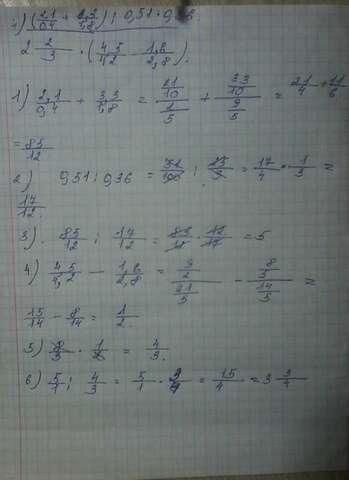 (2,1/0,4 + 3,3/1,8) : 0,51 : 0,36
2 2/3 · (4,5/4,2 - 1,6/2,8)
1) 2,1/0,4 + 3,3/1,8 = 21/10 / 2/5 + 33/10 / 9/5 = 21/4 + 11/6
= 85/12
2) 0,51 : 0,36 = 51/100 : = 17/4 · 1/3 =
17/12.
3) 85/12 : 17/12 = 85/12 · 12/17 = 5
4) 4,5/4,2 - 1,6/2,8 = 9/2 / 21/5 - 8/5 / 14/5 =
15/14 - 8/14 = 1/2.
5) 8/3 · 1/2 = 4/3.
6) 5/1 : 4/3 = 5/1 · 3/4 = 15/4 = 3 3/4